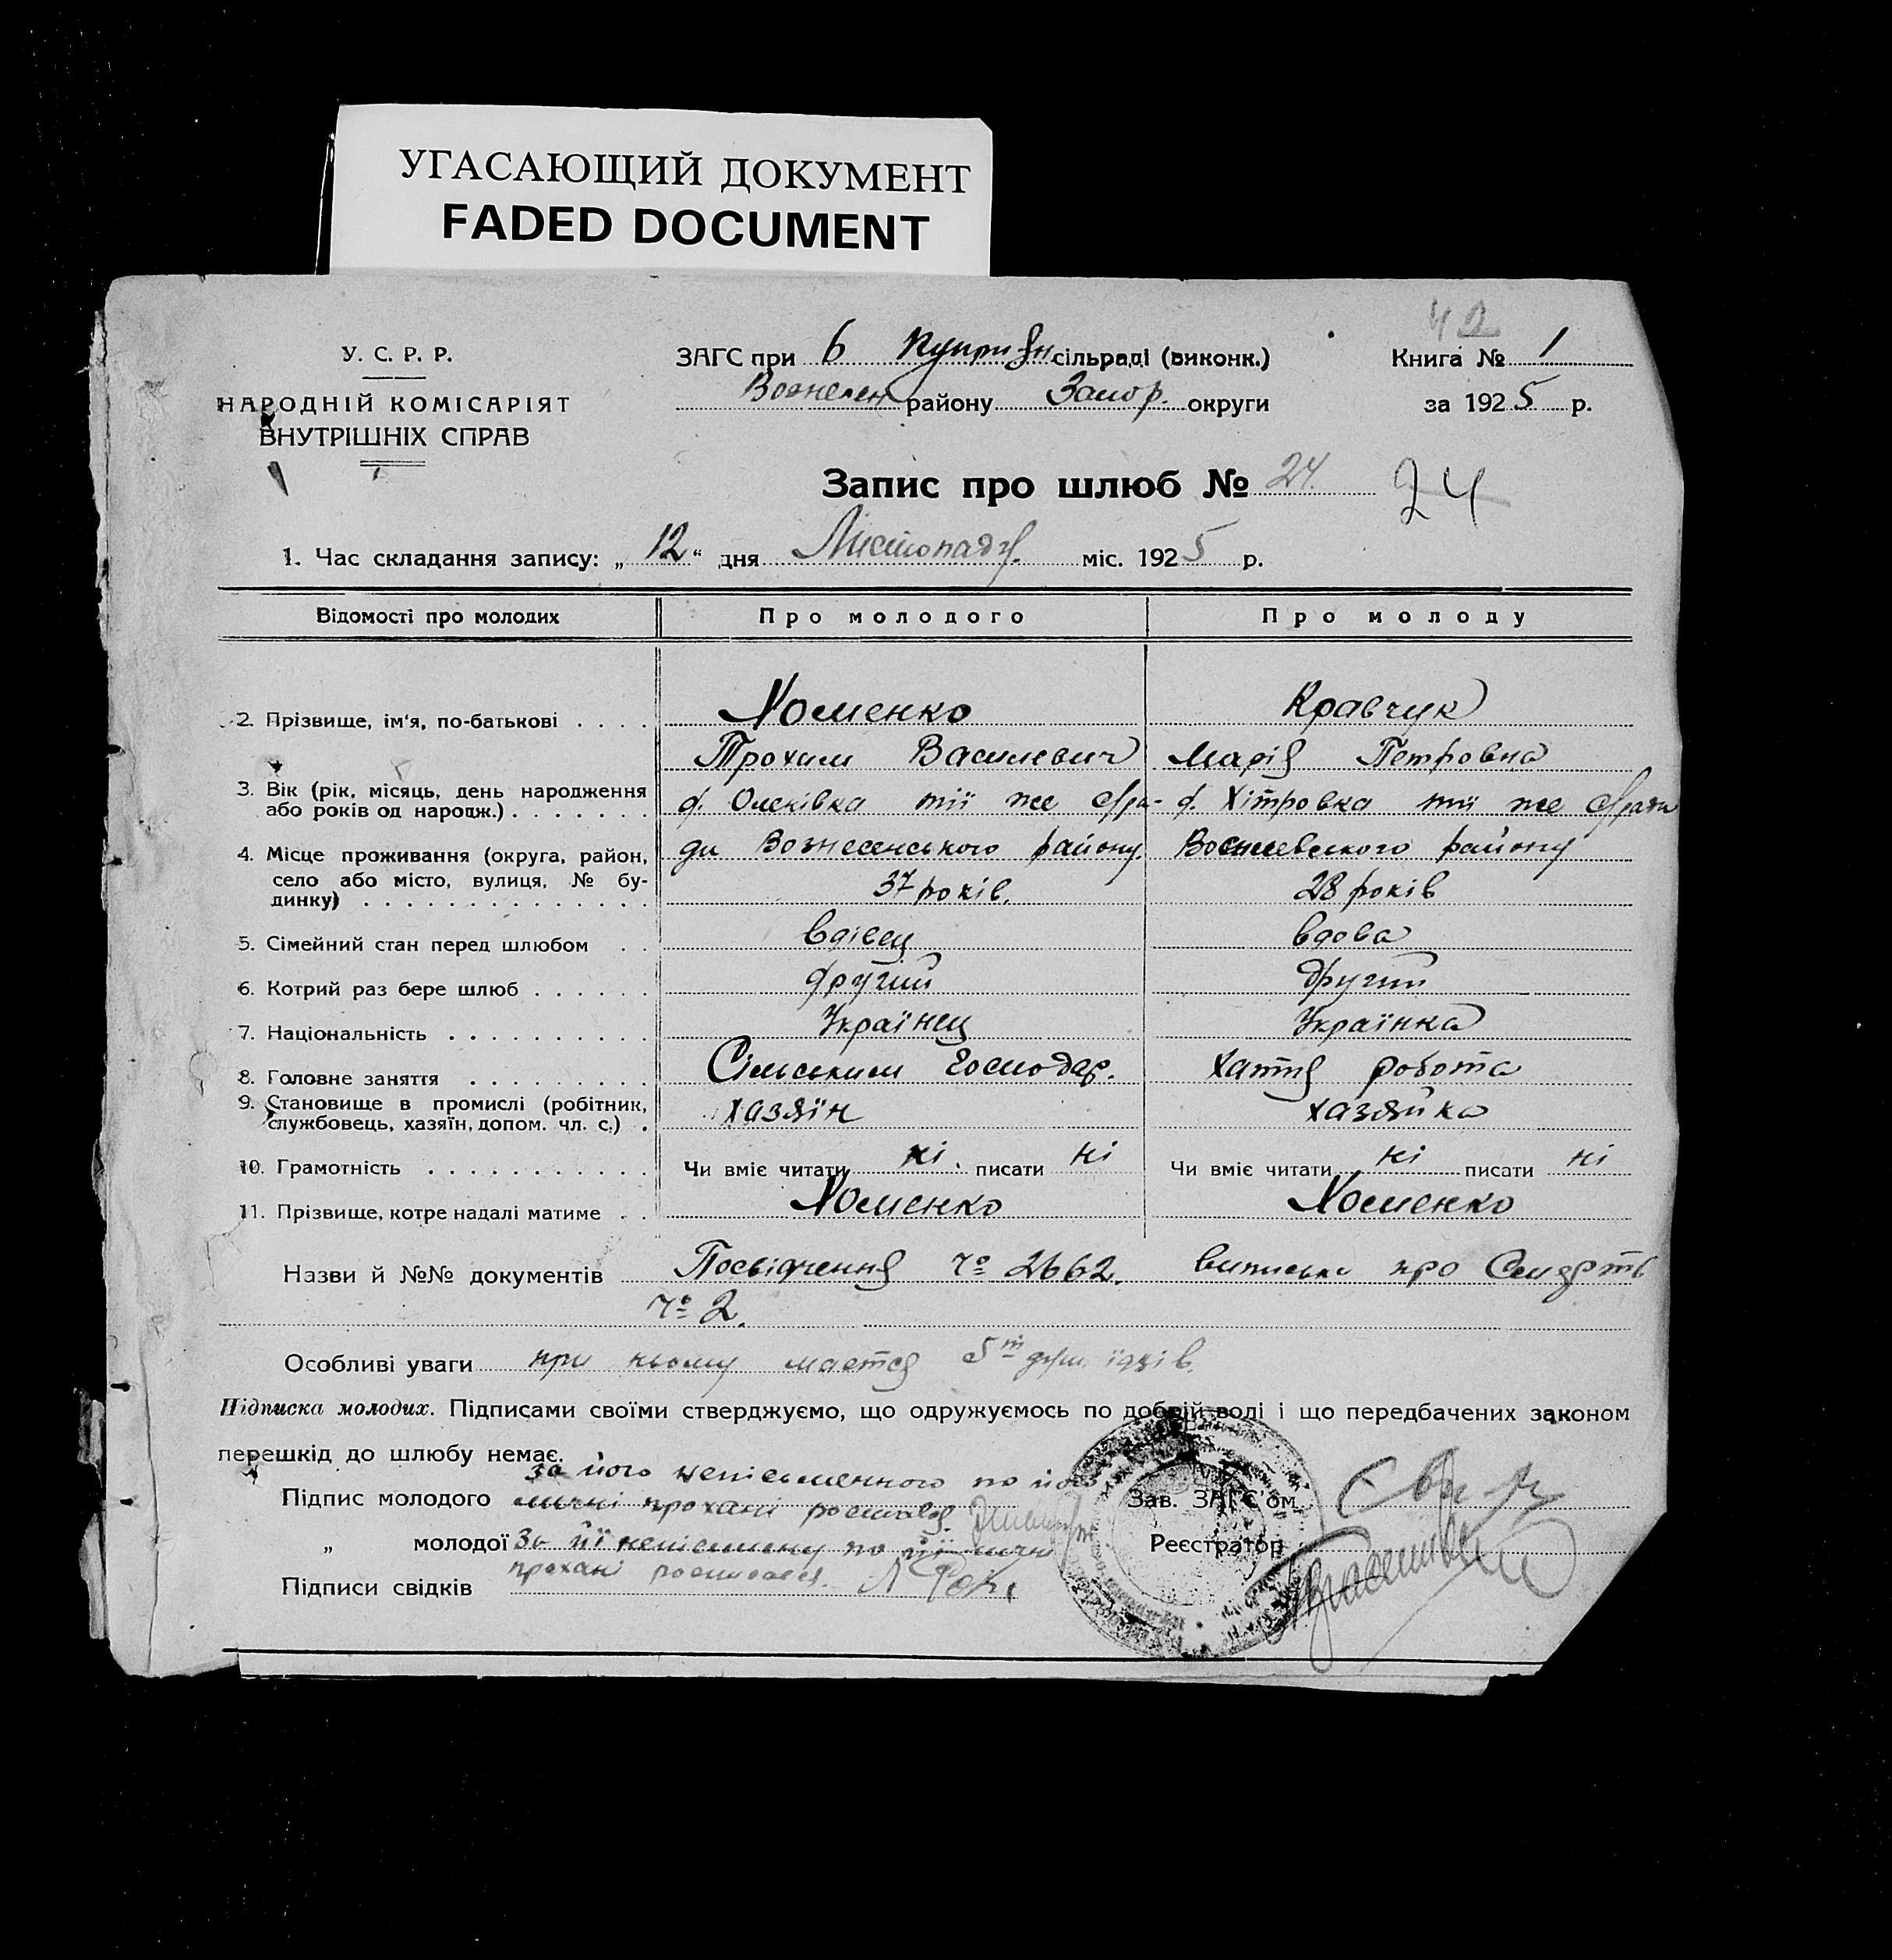 УГАСАЮЩИЙ ДОКУМЕНТ
FADED DOCUMENT
42
У. С. Р. Р.
НАРОДНІЙ КОМІСАРІЯТ
ВНУТРІШНІХ СПРАВ
ЗАГС при 6 сільраді (виконк.)
району Запор. округи
Книга № 1
за 1925 р.
Запис про шлюб № 24. 24
1. Час складання запису: „12“ дня Листопаду. міс. 1925 р.
Відомості про молодих Про молодого Про молоду
2. Прізвище, ім'я, по-батькові . . . . Хоменко Кравчук
Трохим Василевич Марія Петровна
3. Вік (рік, місяць, день народження
або років од народж.) . . . . . . .
д. Оленівка тії же с/ра- д. Хітровка тії же с/ради
4. Місце проживання (округа, район,
село або місто, вулиця, № бу-
динку) . . . . . . . . . . . . . .
ди Вознесенського району. району
37 років. 28 років
5. Сімейний стан перед шлюбом . . вдівец вдова
6. Котрий раз бере шлюб . . . . . . другий другий
7. Національність . . . . . . . . . . Українец Українка
8. Головне заняття . . . . . . . . . Сільським господар. хатня робота
9. Становище в промислі (робітник,
службовець, хазяїн, допом. чл. с.) .
хазяїн хазяйка
10. Грамотність . . . . . . . . . . . Чи вміє читати ні. писати ні Чи вміє читати ні писати ні
11. Прізвище, котре надалі матиме . . Хоменко Хоменко
Назви й №№ документів Посвідчення № 2662. виписка про смерть
№ 2.
Особливі уваги при ньому мается 5т душ. їдків.
Підписка молодих. Підписами своїми стверджуємо, що одружуємось по добрій волі і що передбачених законом
перешкід до шлюбу немає.
за його неписьменного по його
Підпис молодого личні прохані росписався
„ молодої за її неписьмену по її лични
прохані росписався
Підписи свідків
Зав. ЗАГС'ом
Реєстратор